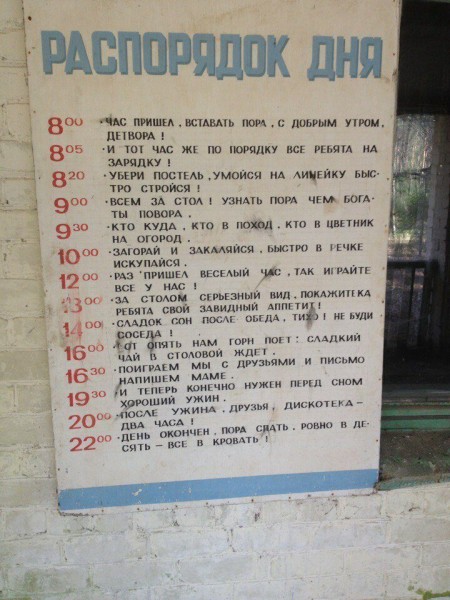 РАСПОРЯДОК ДНЯ
8 00 · ЧАС ПРИШЕЛ, ВСТАВАТЬ ПОРА, С ДОБРЫМ УТРОМ,
ДЕТВОРА!
8 05 · И ТОТ ЧАС ЖЕ ПО ПОРЯДКУ ВСЕ РЕБЯТА НА
ЗАРЯДКУ!
8 20 · УБЕРИ ПОСТЕЛЬ, УМОЙСЯ НА ЛИНЕЙКУ БЫС-
ТРО СТРОЙСЯ!
9 00 · ВСЕМ ЗА СТОЛ! УЗНАТЬ ПОРА ЧЕМ БОГА-
ТЫ ПОВОРА.
9 30 · КТО КУДА, КТО В ПОХОД, КТО В ЦВЕТНИК
НА ОГОРОД.
10 00 · ЗАГОРАЙ И ЗАКАЛЯЙСЯ, БЫСТРО В РЕЧКЕ
ИСКУПАЙСЯ.
12 00 · РАЗ ПРИШЕЛ ВЕСЕЛЫЙ ЧАС, ТАК ИГРАЙТЕ
ВСЕ У НАС!
13 00 · ЗА СТОЛОМ СЕРЬЕЗНЫЙ ВИД, ПОКАЖИТЕКА
РЕБЯТА СВОЙ ЗАВИДНЫЙ АППЕТИТ!
14 00 · СЛАДОК СОН ПОСЛЕ ОБЕДА, ТИХО! НЕ БУДИ
СОСЕДА!
16 00 · ОТ ОПЯТЬ НАМ ГОРН ПОЕТ: СЛАДКИЙ
ЧАЙ В СТОЛОВОЙ ЖДЕТ.
16 30 · ПОИГРАЕМ МЫ С ДРУЗЬЯМИ И ПИСЬМО
НАПИШЕМ МАМЕ.
19 30 · И ТЕПЕРЬ КОНЕЧНО НУЖЕН ПЕРЕД СНОМ
ХОРОШИЙ УЖИН.
20 00 · ПОСЛЕ УЖИНА, ДРУЗЬЯ, ДИСКОТЕКА –
ДВА ЧАСА!
22 00 · ДЕНЬ ОКОНЧЕН, ПОРА СПАТЬ, РОВНО В ДЕ-
СЯТЬ – ВСЕ В КРОВАТЬ!